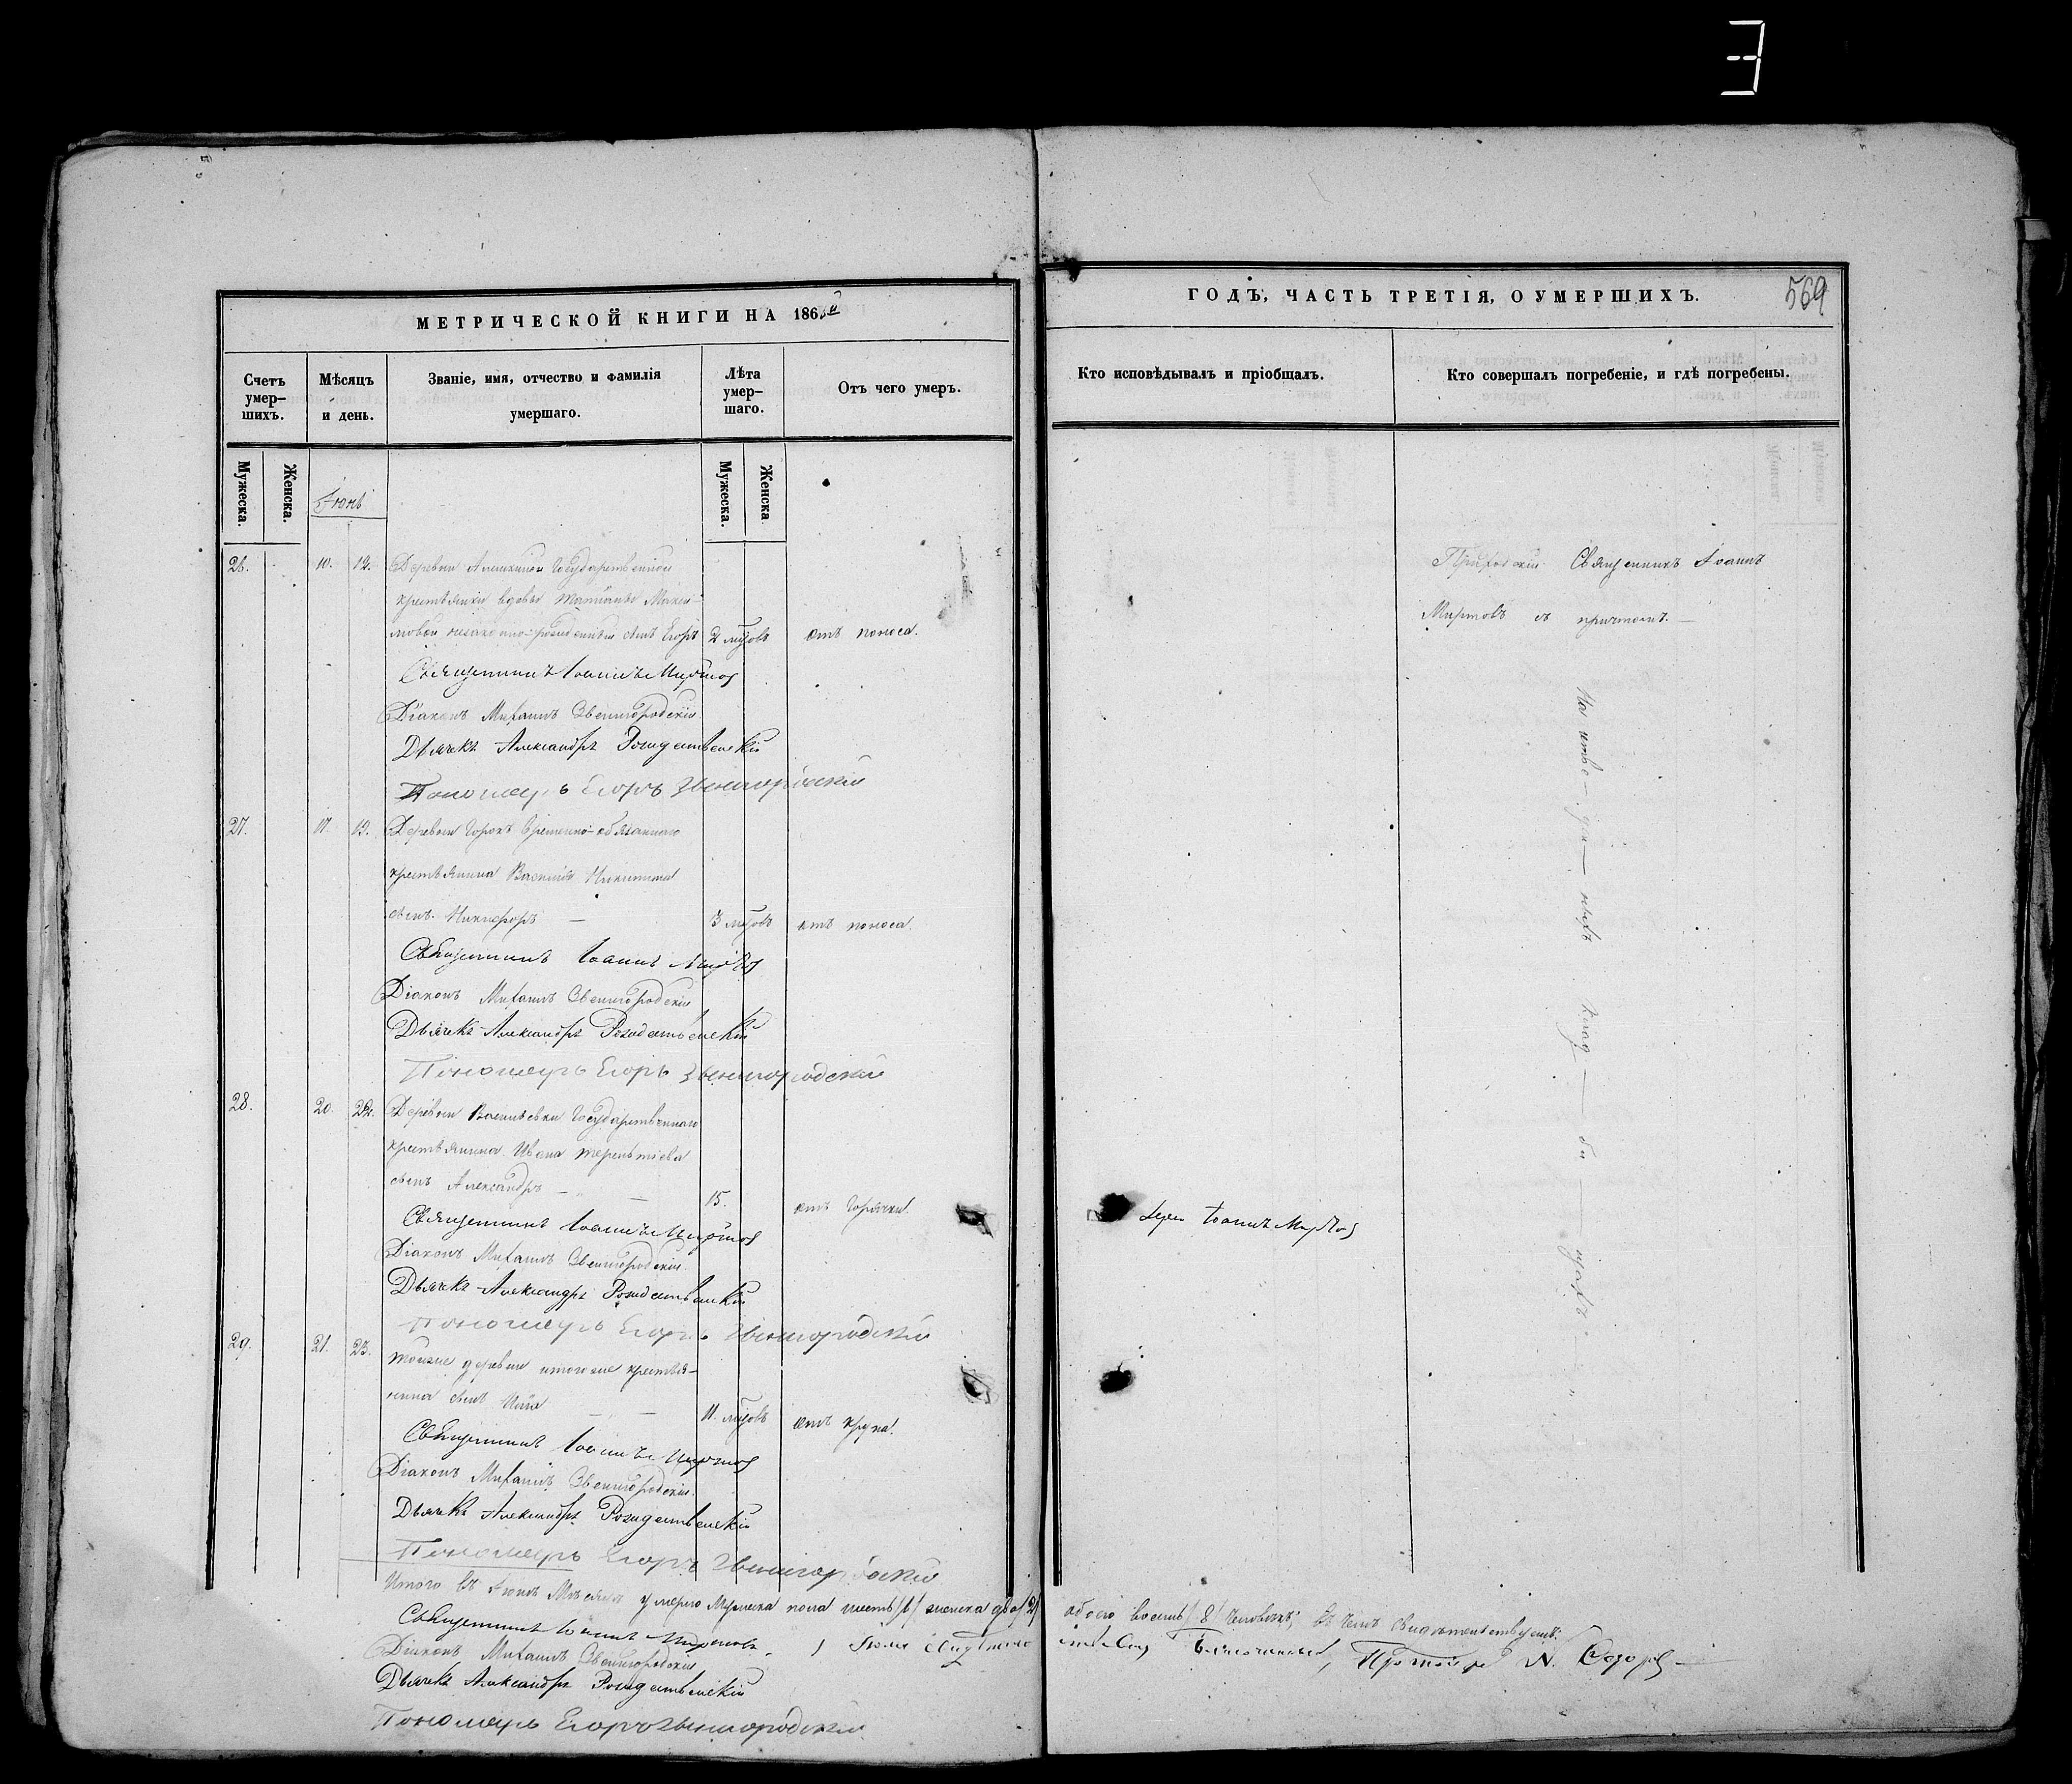 МЕТРИЧЕСКОЙ КНИГИ НА 186
Счетъ умер-шихъ.
Мѣсяцъ и день.
Званіе, имя, отчество и фамилія умершаго.
Лѣта умер-шаго.
Отъ чего умеръ.
Мужеска.
Женска.
Мужеска.
Женска
Іюнь
26. 10. 12. Деревни Алешкиной Государственной
крестьянки вдовы Татіаны Макси-
мовой незаконнорожденный сынъ Егоръ 2 мцовъ отъ поноса.
Священникъ Іоаннъ Миртов
Діаконъ Михаилъ Звенигородскій
Дьячекъ Александръ Рождественскій
Пономарь Егоръ Звенигородскій
27. 17. 19. Деревни Горокъ Временно-обязаннаго
крестьянина Василія Никитина
сынъ Никифоръ — 3 мцовъ отъ поноса.
Священникъ Іоаннъ Миртов
Діаконъ Михаилъ Звенигородскій
Дьячекъ Александръ Рождественскій
Пономарь Егоръ Звенигородскій
28. 20. 22. Деревни Васильевки Государственнаго
крестьянина Ивана Терентіева
сынъ Александръ — — 15. отъ горячки.
Священникъ Іоаннъ Миртов
Діаконъ Михаилъ Звенигородскій
Дьячекъ Александръ Рождественскій
Пономарь Егоръ Звенигородскій
29. 21. 23. Тойже деревни тогоже крестья-
нина сынъ Илія — — 11. мцовъ отъ крупа.
Священникъ Іоаннъ Миртов
Діаконъ Михаилъ Звенигородскій
Дьячекъ Александръ Рождественскій
Пономарь Егоръ Звенигородскій
Итого въ Іюнѣ Мѣсяцѣ умерло Мужеска пола шесть /6/ женска два /2/
Священникъ Іоаннъ Миртовъ
Діаконъ Михаилъ Звенигородскій
Дьячекъ Александръ Рождественскій
Пономарь Егоръ Звенигородскій
ГОДЪ, ЧАСТЬ ТРЕТІЯ, О УМЕРШИХЪ.
569
Кто исповѣдывалъ и пріобщалъ.
Кто совершалъ погребеніе, и гдѣ погребены.
Приходскій Священникъ Іоаннъ
Миртовъ съ причтомъ. —
клад — би — щахъ
Іерей Іоаннъ Миртов
обоего восемь / 8 / человѣкъ; въ чемъ свидѣтельствуемъ:
Благочинный, Протоіерей N.